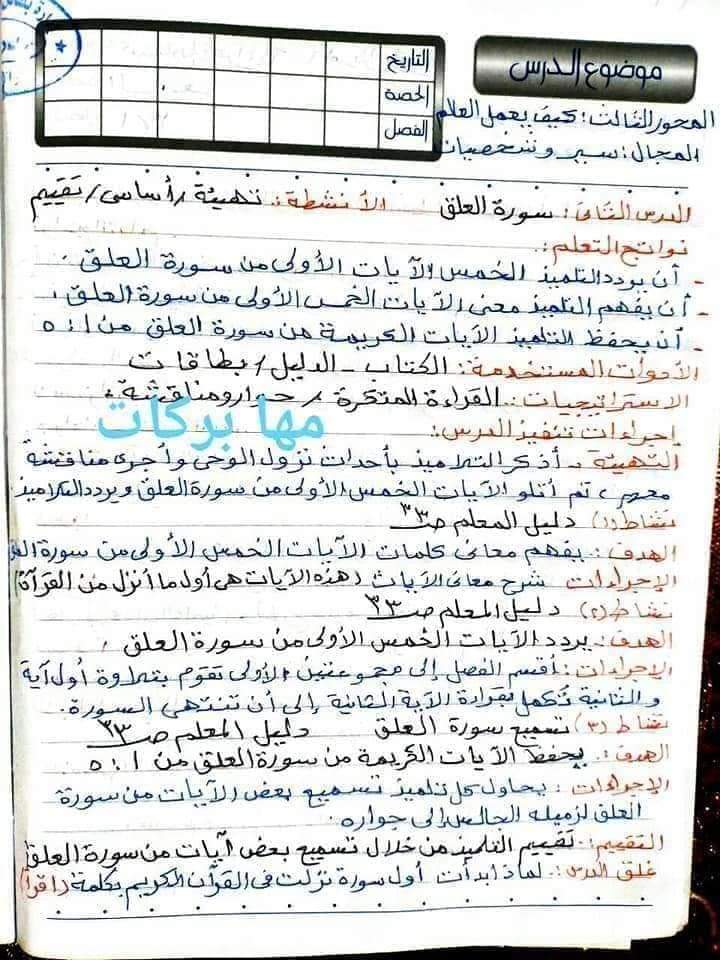 موضوع الدرس
التاريخ
الحصة
الفصل
المحور الثالث: كيف يعمل العالم
المجال: سير وشخصيات
الدرس الثانى: سورة العلق الأنشطة: تهيئة / أساسى / تقييم
نواتج التعلم:
- أن يردد التلميذ الخمس الآيات الأولى من سورة العلق.
- أن يفهم التلميذ معنى الآيات الخمس الأولى من سورة العلق.
- أن يحفظ التلميذ الآيات الكريمة من سورة العلق من ١: ٥
الأدوات المستخدمة: الكتاب - الدليل / بطاقات
الاستراتيجيات: القراءة المتكررة / حوار ومناقشة.
مها بركات
إجراءات تنفيذ الدرس:
التهيئة: أذكر التلاميذ بأحداث نزول الوحى وأجرى مناقشة
معهم، ثم أتلو الآيات الخمس الأولى من سورة العلق ويردد التلاميذ
نشاط (١) دليل المعلم صـ ٣٣
الهدف: يفهم معانى كلمات الآيات الخمس الأولى من سورة
الإجراءات شرح معانى الآيات (هذه الآيات هى أول ما أنزل من القرآن)
نشاط (٢) دليل المعلم صـ ٣٣
الهدف: يردد الآيات الخمس الأولى من سورة العلق.
الإجراءات: أقسم الفصل إلى مجموعتين الأولى تقوم بتلاوة أول آية
والثانية تكمل بقراءة الآية الثانية إلى أن تنتهى السورة.
نشاط (٣) تسميع سورة العلق دليل المعلم صـ ٣٣
الهدف: يحفظ الآيات الكريمة من سورة العلق من ١: ٥
الإجراءات: يحاول كل تلميذ تسميع بعض الآيات من سورة
العلق لزميله الجالس إلى جواره.
التقييم: تقييم التلميذ من خلال تسميع بعض آيات من سورة العلق
غلق الدرس: لماذا بدأت أول سورة نزلت فى القرآن الكريم بكلمة (اقرأ)